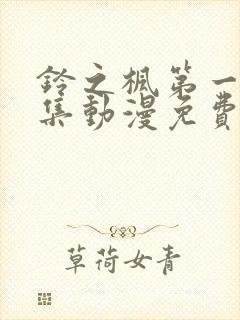 鈴之楓第一
集動漫免費
草荷女青